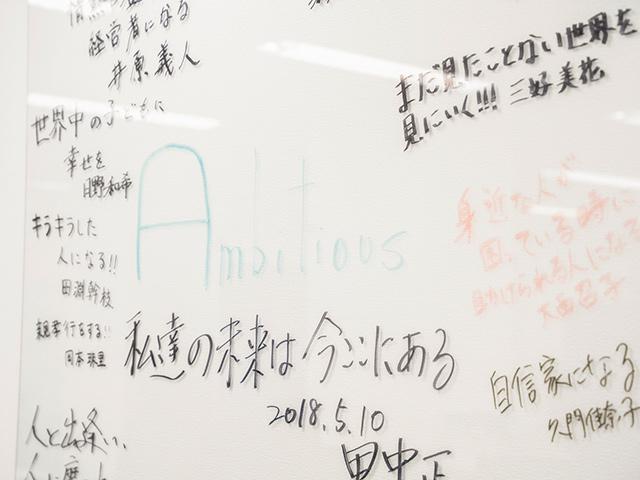 経営者になる
井原義人
まだ見たことない世界を
見にいく!!! 三好美花
世界中の子どもに
幸せを
日野和希
Ambitious
キラキラした
人になる!!
田淵幹枝
親孝行をする!!
岡本珠里
身近な人が
困っている時に
助けられる人になる
大西召子
私達の未来は今ここにある
2018.5.10
田中正
自信家になる
久門佳奈子
人と出逢い、
人に